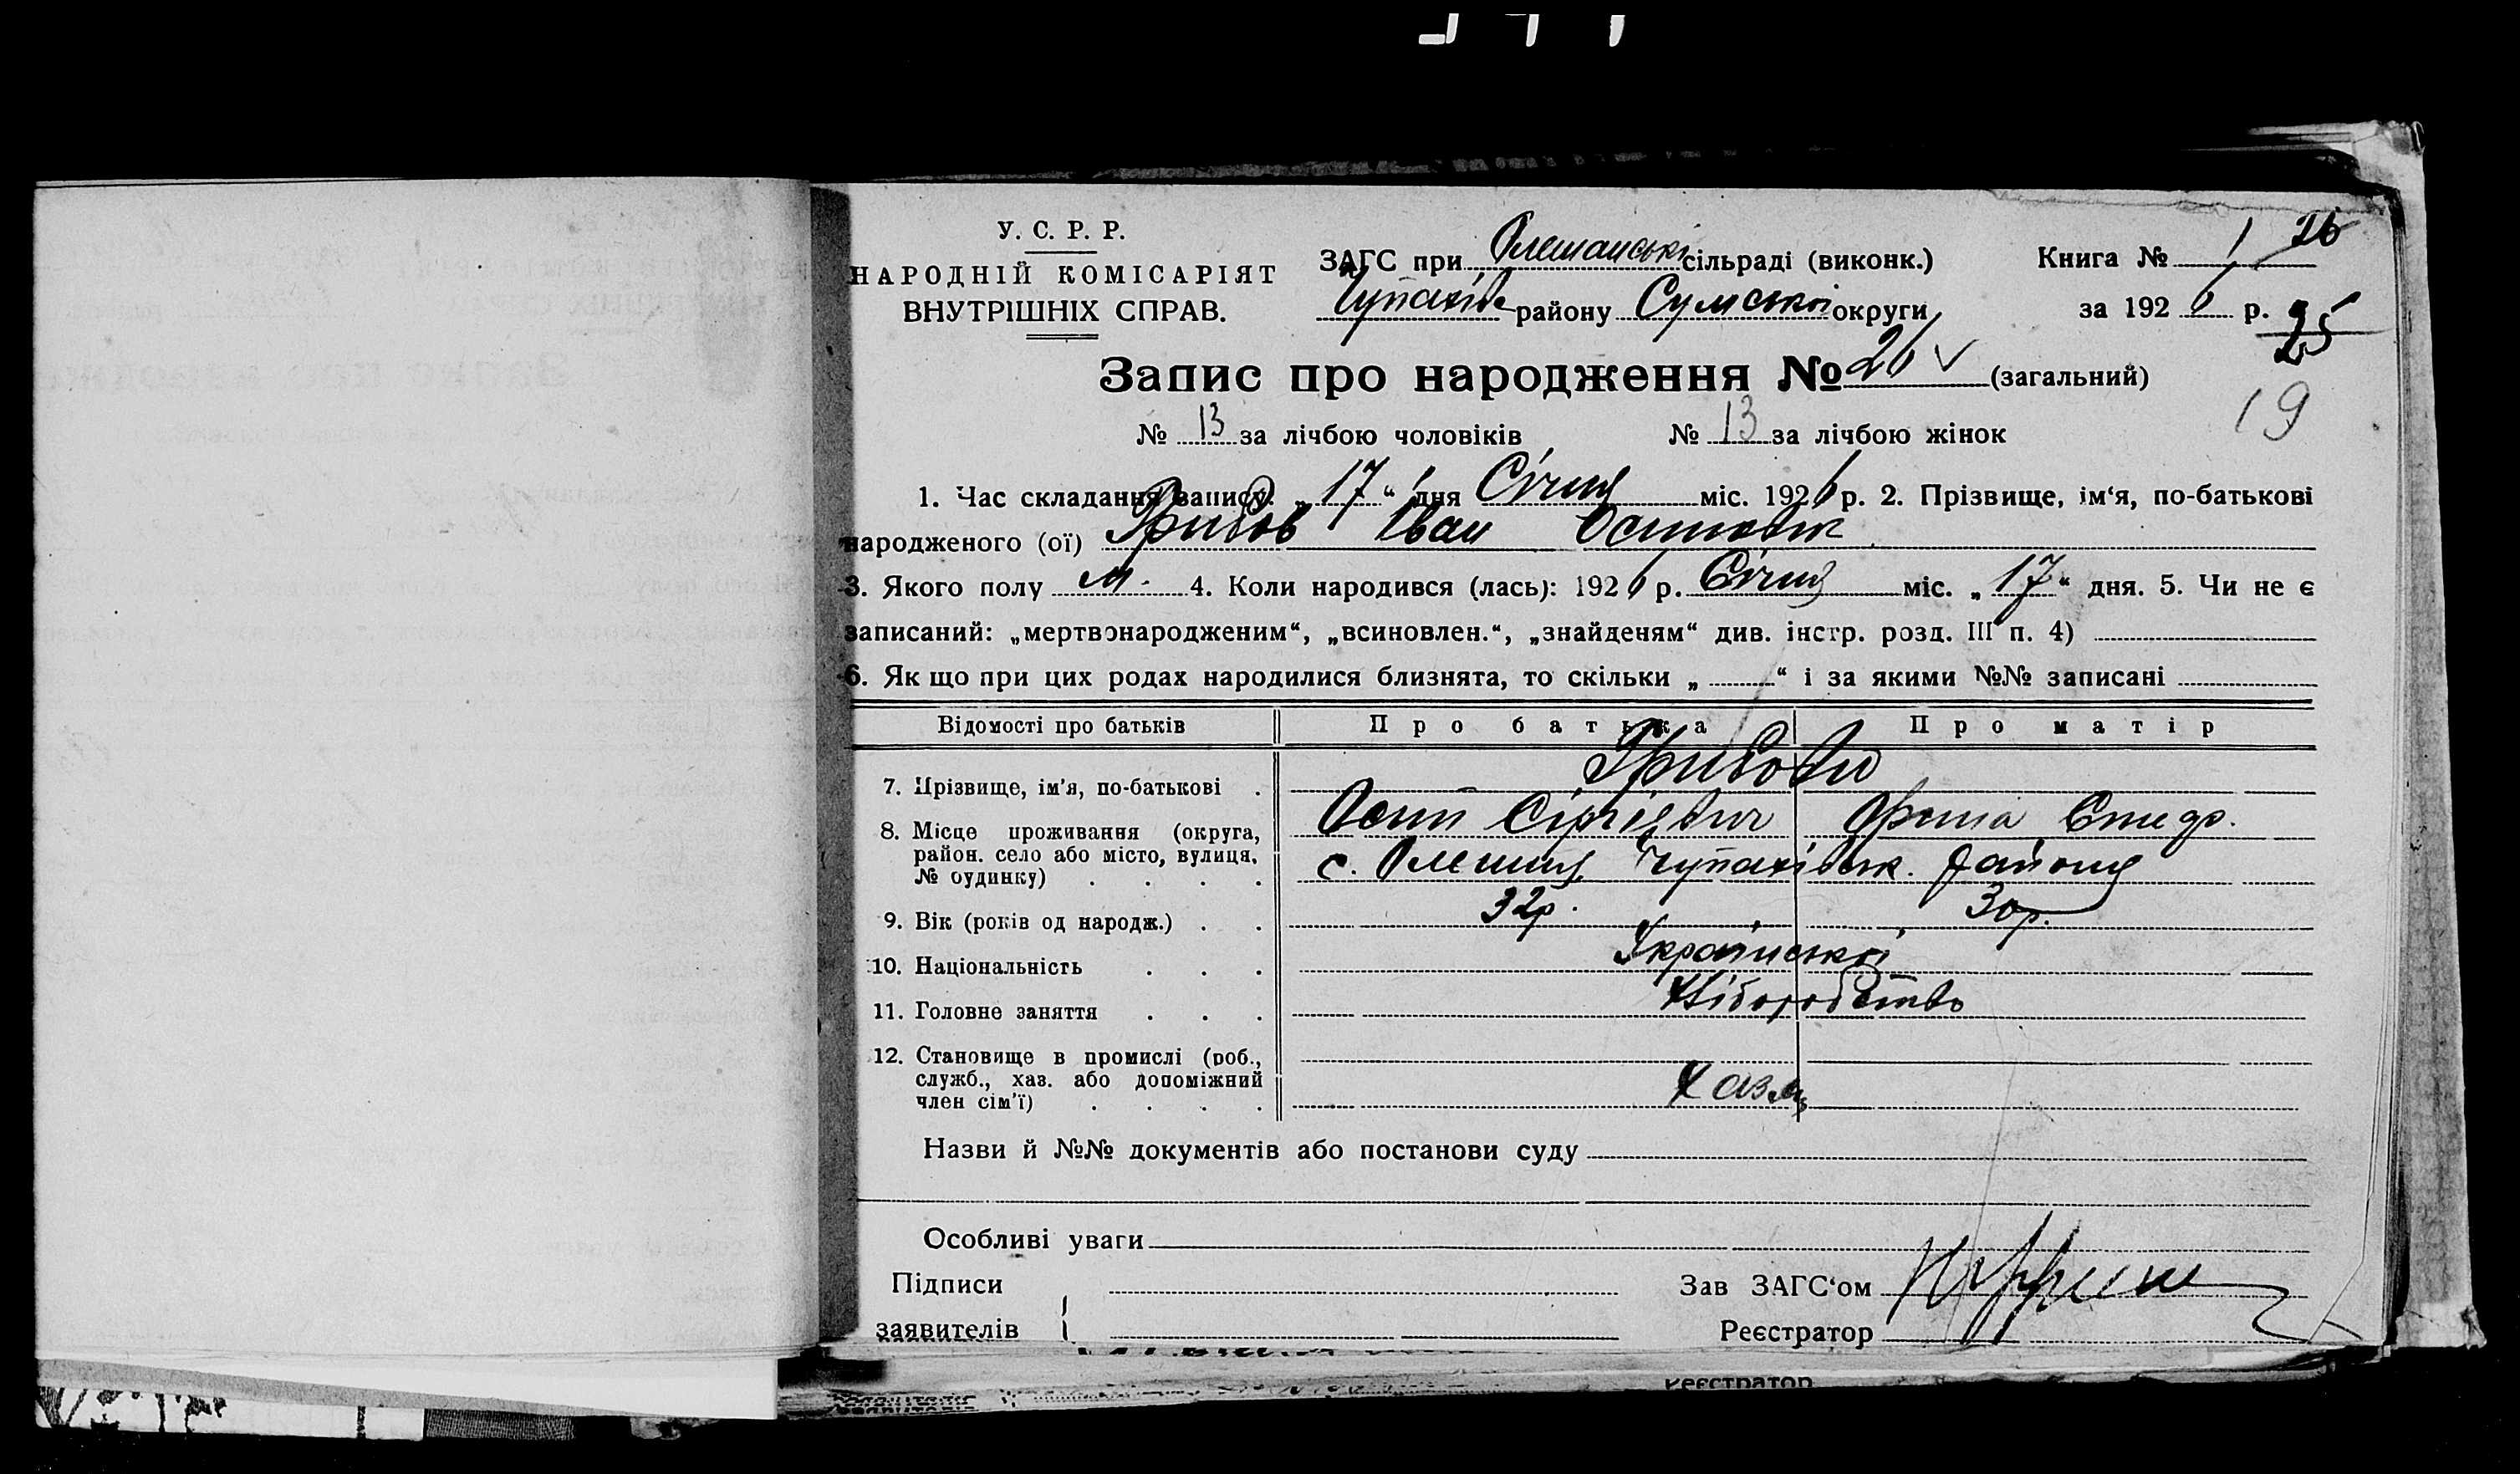 У. С. Р. Р.
НАРОДНІЙ КОМІСАРІЯТ
ВНУТРІШНІХ СПРАВ.
ЗАГС при Олешанські сільраді (виконк.)
Чупахівс району Сумської округи
Книга № 1 26
за 1926 р. 25
Запис про народження № 26 (загальний)
19
№ 13 за лічбою чоловіків № 13 за лічбою жінок
1. Час складання запису: „17“ дня Січня міс. 1926 р. 2. Прізвище, ім‘я, по-батькові
народженого (ої) Грибов Іван Осипович
3. Якого полу м. 4. Коли народився (лась): 1926 р. Січня міс. „17“ дня. 5. Чи не є
записаний: „мертвонародженим“, „всиновлен.“, „знайденям“ див. інстр. розд. III п. 4)
6. Як що при цих родах народилися близнята, то скільки „ “ і за якими №№ записані
Відомості про батьків Про батька Про матір
Грибови
7. Прізвище, ім'я, по-батькові
Осип Сіргієвич
8. Місце проживання (округа,
район. село або місто, вулиця,
№ будинку)
с. Олешня Чупахівськ. району
9. Вік (років од народж.) 32р. 30р.
10. Національність Українській
11. Головне заняття Хліборобство
12. Становище в промислі (роб.,
служб., хаз. або допоміжний
член сім'ї)
Назви й №№ документів або постанови суду
Особливі уваги
Підписи
заявителів
Зав ЗАГС‘ом
Реєстратор
Реєстратор